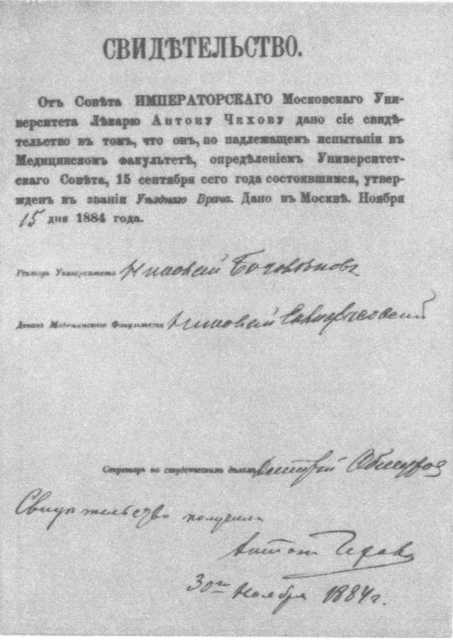 СВИДѢТЕЛЬСТВО.
Отъ Совѣта ИМПЕРАТОРСКАГО Московскаго Уни-
верситета Лѣкарю Антону Чехову дано сіе свидѣ-
тельство въ томъ, что онъ, по надлежащемъ испытаніи въ
Медицинскомъ факультетѣ, опредѣленіемъ Университет-
скаго Совѣта, 15 сентября сего года состоявшимся, утвер-
жденъ въ званіи Уѣзднаго Врача. Дано въ Москвѣ. Ноября
15 дня 1884 года.
Ректоръ Университета Николай Боголѣповъ
Деканъ Медицинскаго Факультета Николай Склифосовскій
Секретарь по студенческимъ дѣламъ Дмитрій
Свидѣтельство получилъ
Антонъ Чеховъ
30го Ноября 1884 г.